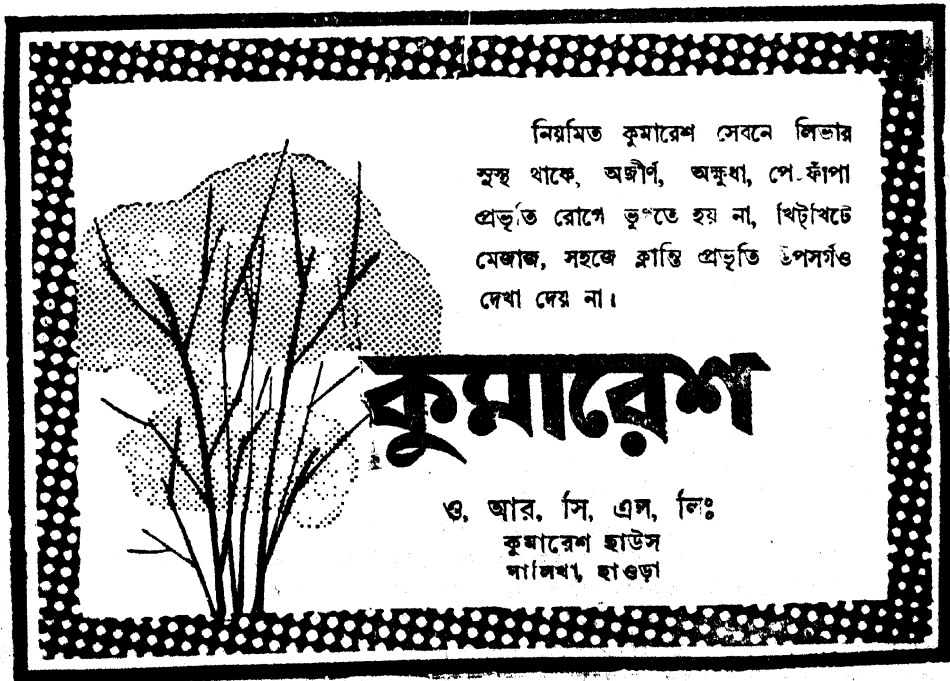 নিয়মিত কুমারেশ সেবনে লিভার
সুস্থ থাকে, অজীর্ণ, অক্ষুধা, পেটফাঁপা
প্রভৃতি রোগে ভুগতে হয় না, খিট্‌খিটে
মেজাজ, সহজে ক্লান্তি প্রভৃতি উপসর্গও
দেখা দেয় না।
কুমারেশ
ও, আর, সি, এল, লিঃ
কুমারেশ হাউস
সালিখা, হাওড়া